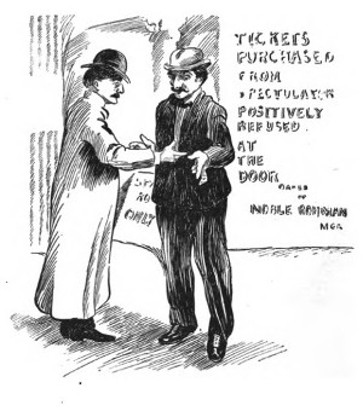 TICKETS
PURCHASED
FROM
SPECTULATER
POSITIVELY
REFUSED.
AT
THE
DOOR.
NOBLE
MGR
ONLY